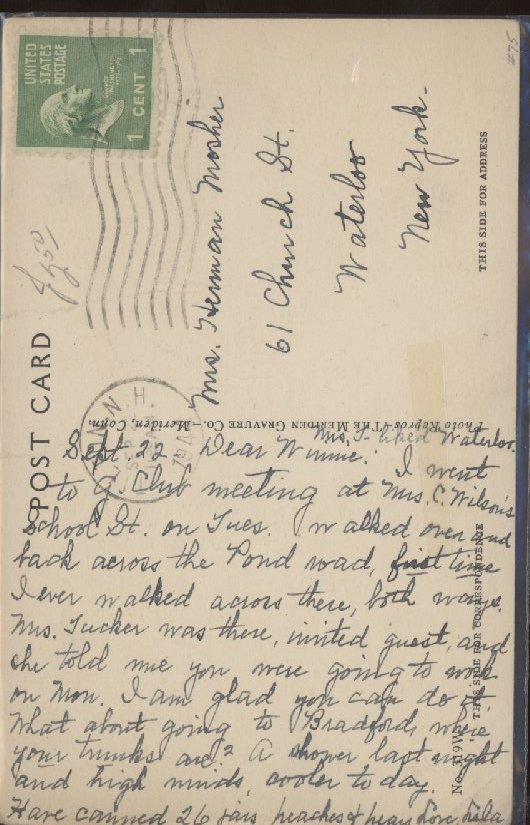 UNITED
STATES
POSTAGE
1 CENT 1
$75
POST CARD
N. H.
Mrs. Herman Mosher
61 Church St.
Waterloo
New York.
THIS SIDE FOR ADDRESS
Photo Repros—THE MERIDEN GRAVURE CO.—Meriden, Conn.
THIS SIDE FOR CORRESPONDENCE
Mrs. T- liked Waterloo.
Sept. 22 Dear Winnie: I went
to G. Club meeting at Mrs. C. Wilson's
School St. on Tues. I walked over and
back across the Pond road, first time
I ever walked across there, both ways.
Mrs. Tucker was there, invited guest, and
she told me you were going to work
on Mon. I am glad you can do it.
What about going to Bradford, where
your trunks are? A shower last night
and high winds, cooler today.
Have canned 26 jars peaches & pears Love Lila